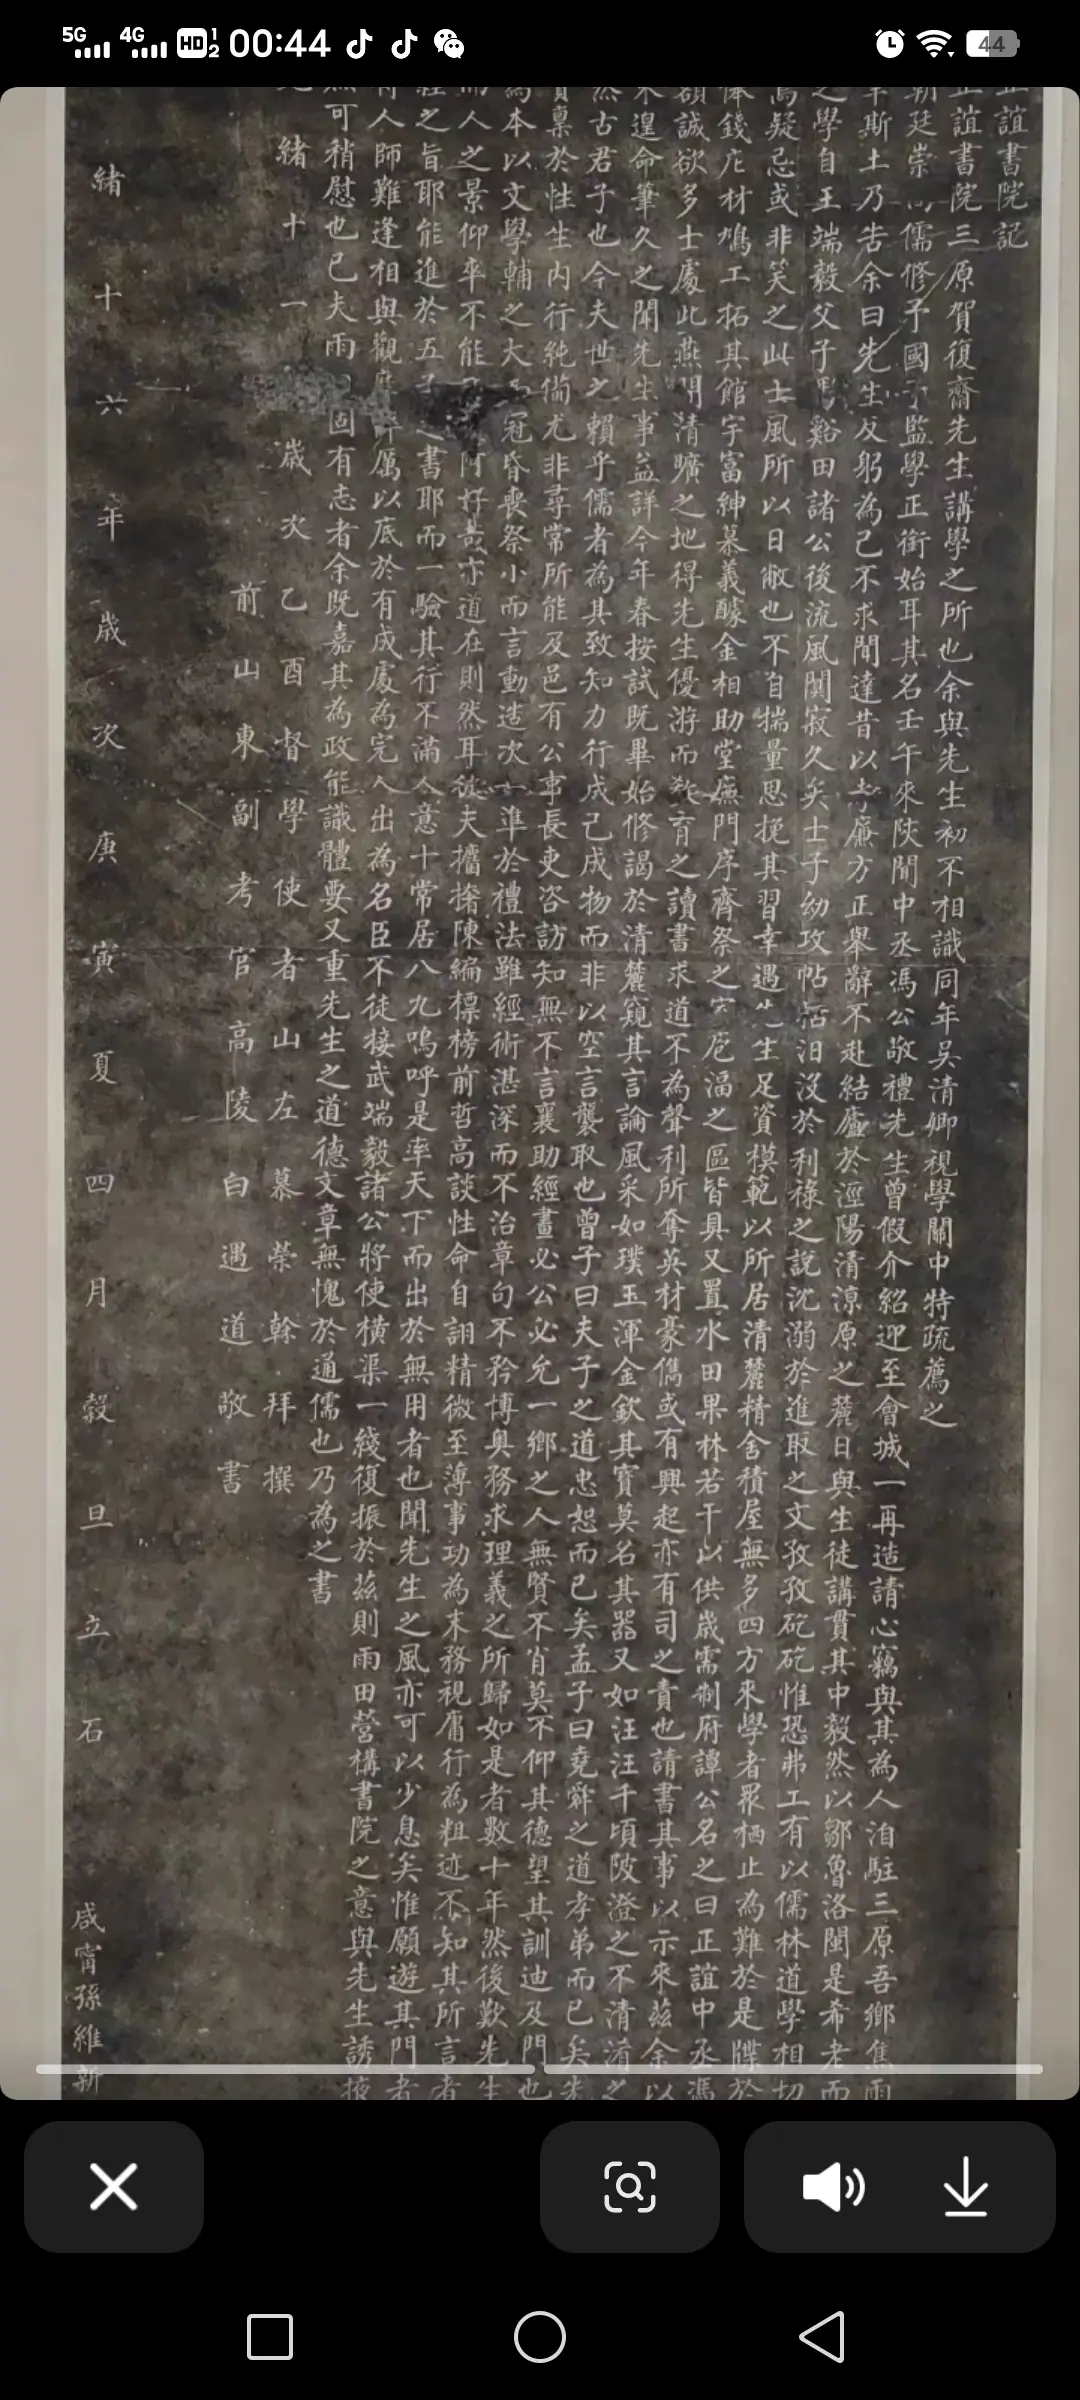 5G 4G HD 1 2 00:44 44
正誼書院記
正誼書院三原賀復齋先生講學之所也余與先生初不相識同年吳清卿視學關中特疏薦之
朝廷崇儒修予國子監學正銜始耳其名壬午來陝聞中丞馮公敬禮先生曾假介紹迎至會城一再造請心竊與其為人洎駐三原吾鄉焦雨
斯土乃告余曰先生反躬為己不求聞達昔以孝廉方正舉辭不赴結廬於涇陽清涼原之麓日與生徒講貫其中毅然以鄒魯洛閩是希老而
之學自王端毅父子馬谿田諸公後流風闃寂久矣士子幼攻帖括汩沒於利祿之說沈溺於進取之文孜孜矻矻惟恐弗工有以儒林道學相切
為疑忌或非笑之此士風所以日敝也不自揣量思挽其習幸遇先生足資模範以所居清麓精舍積屋無多四方來學者眾栖止為難於是牒於
俸錢庀材鳩工拓其館宇富紳慕義醵金相助堂廡門序齊祭之室庖湢之區皆具又置水田果林若干以供歲需制府譚公名之曰正誼中丞馮
額誠欲多士處此燕閒清曠之地得先生優游而教育之讀書求道不為聲利所奪英材豪儁或有興起亦有司之責也請書其事以示來茲余以
未遑命筆久之聞先生事益詳今年春按試既畢始修謁於清麓窺其言論風采如璞玉渾金欽其寶莫名其器又如汪汪千頃陂澄之不清淆之
然古君子也今夫世之賴乎儒者為其致知力行成己成物而非以空言襲取也曾子曰夫子之道忠恕而已矣孟子曰堯舜之道孝弟而已矣先
質稟於性生內行純備尤非尋常所能及邑有公事長吏咨訪知無不言襄助經畫必公必允一鄉之人無賢不肖莫不仰其德望其訓迪及門也
為本以文學輔之大而冠昏喪祭小而言動造次一準於禮法雖經術湛深而不治章句不矜博奧務求理義之所歸如是者數十年然後歎先生
而人之景仰卒不能 阿好哉亦道在則然耳後夫攟摭陳編標榜前哲高談性命自詡精微至薄事功為末務視庸行為粗迹不知其所言者
經之旨耶能進於五子之書耶而一驗其行不滿人意十常居八九嗚呼是率天下而出於無用者也聞先生之風亦可以少息矣惟願遊其門者
人師難逢相與觀摩 厲以底於有成處為完人出為名臣不徒接武端毅諸公將使橫渠一綫復振於茲則雨田營構書院之意與先生誘掖
可稍慰也已夫雨田固有志者余既嘉其為政能識體要又重先生之道德文章無愧於通儒也乃為之書
緒十一歲次乙酉督學使者山左慕榮榦拜撰
前山東副考官高陵白遇道敬書
緒十六年歲次庚寅夏四月穀旦立石
咸甯孫維新